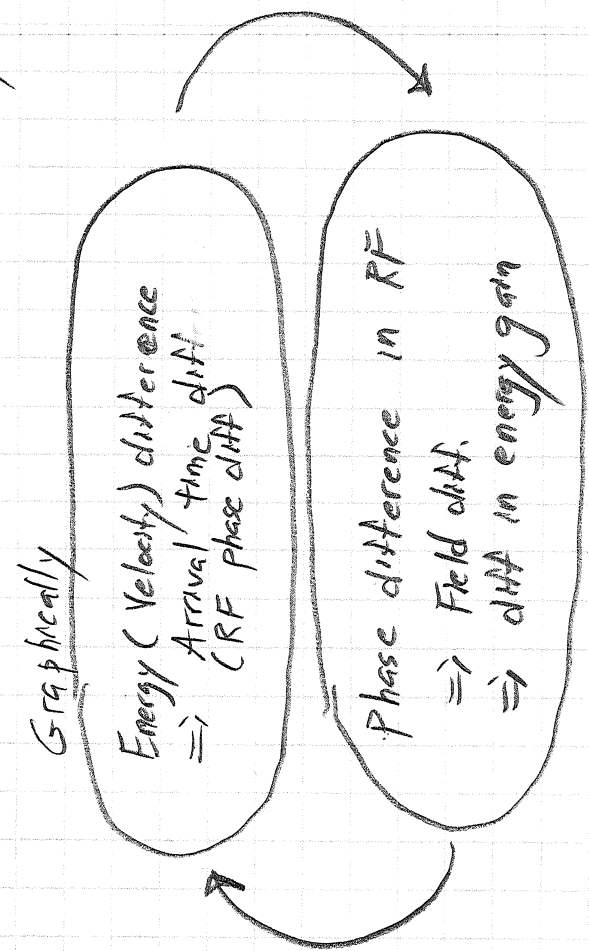 Graphically
Energy (Velocity) difference
=> Arrival time diff.
(RF phase diff)
Phase difference in RF
=> Field diff.
=> diff in energy gain